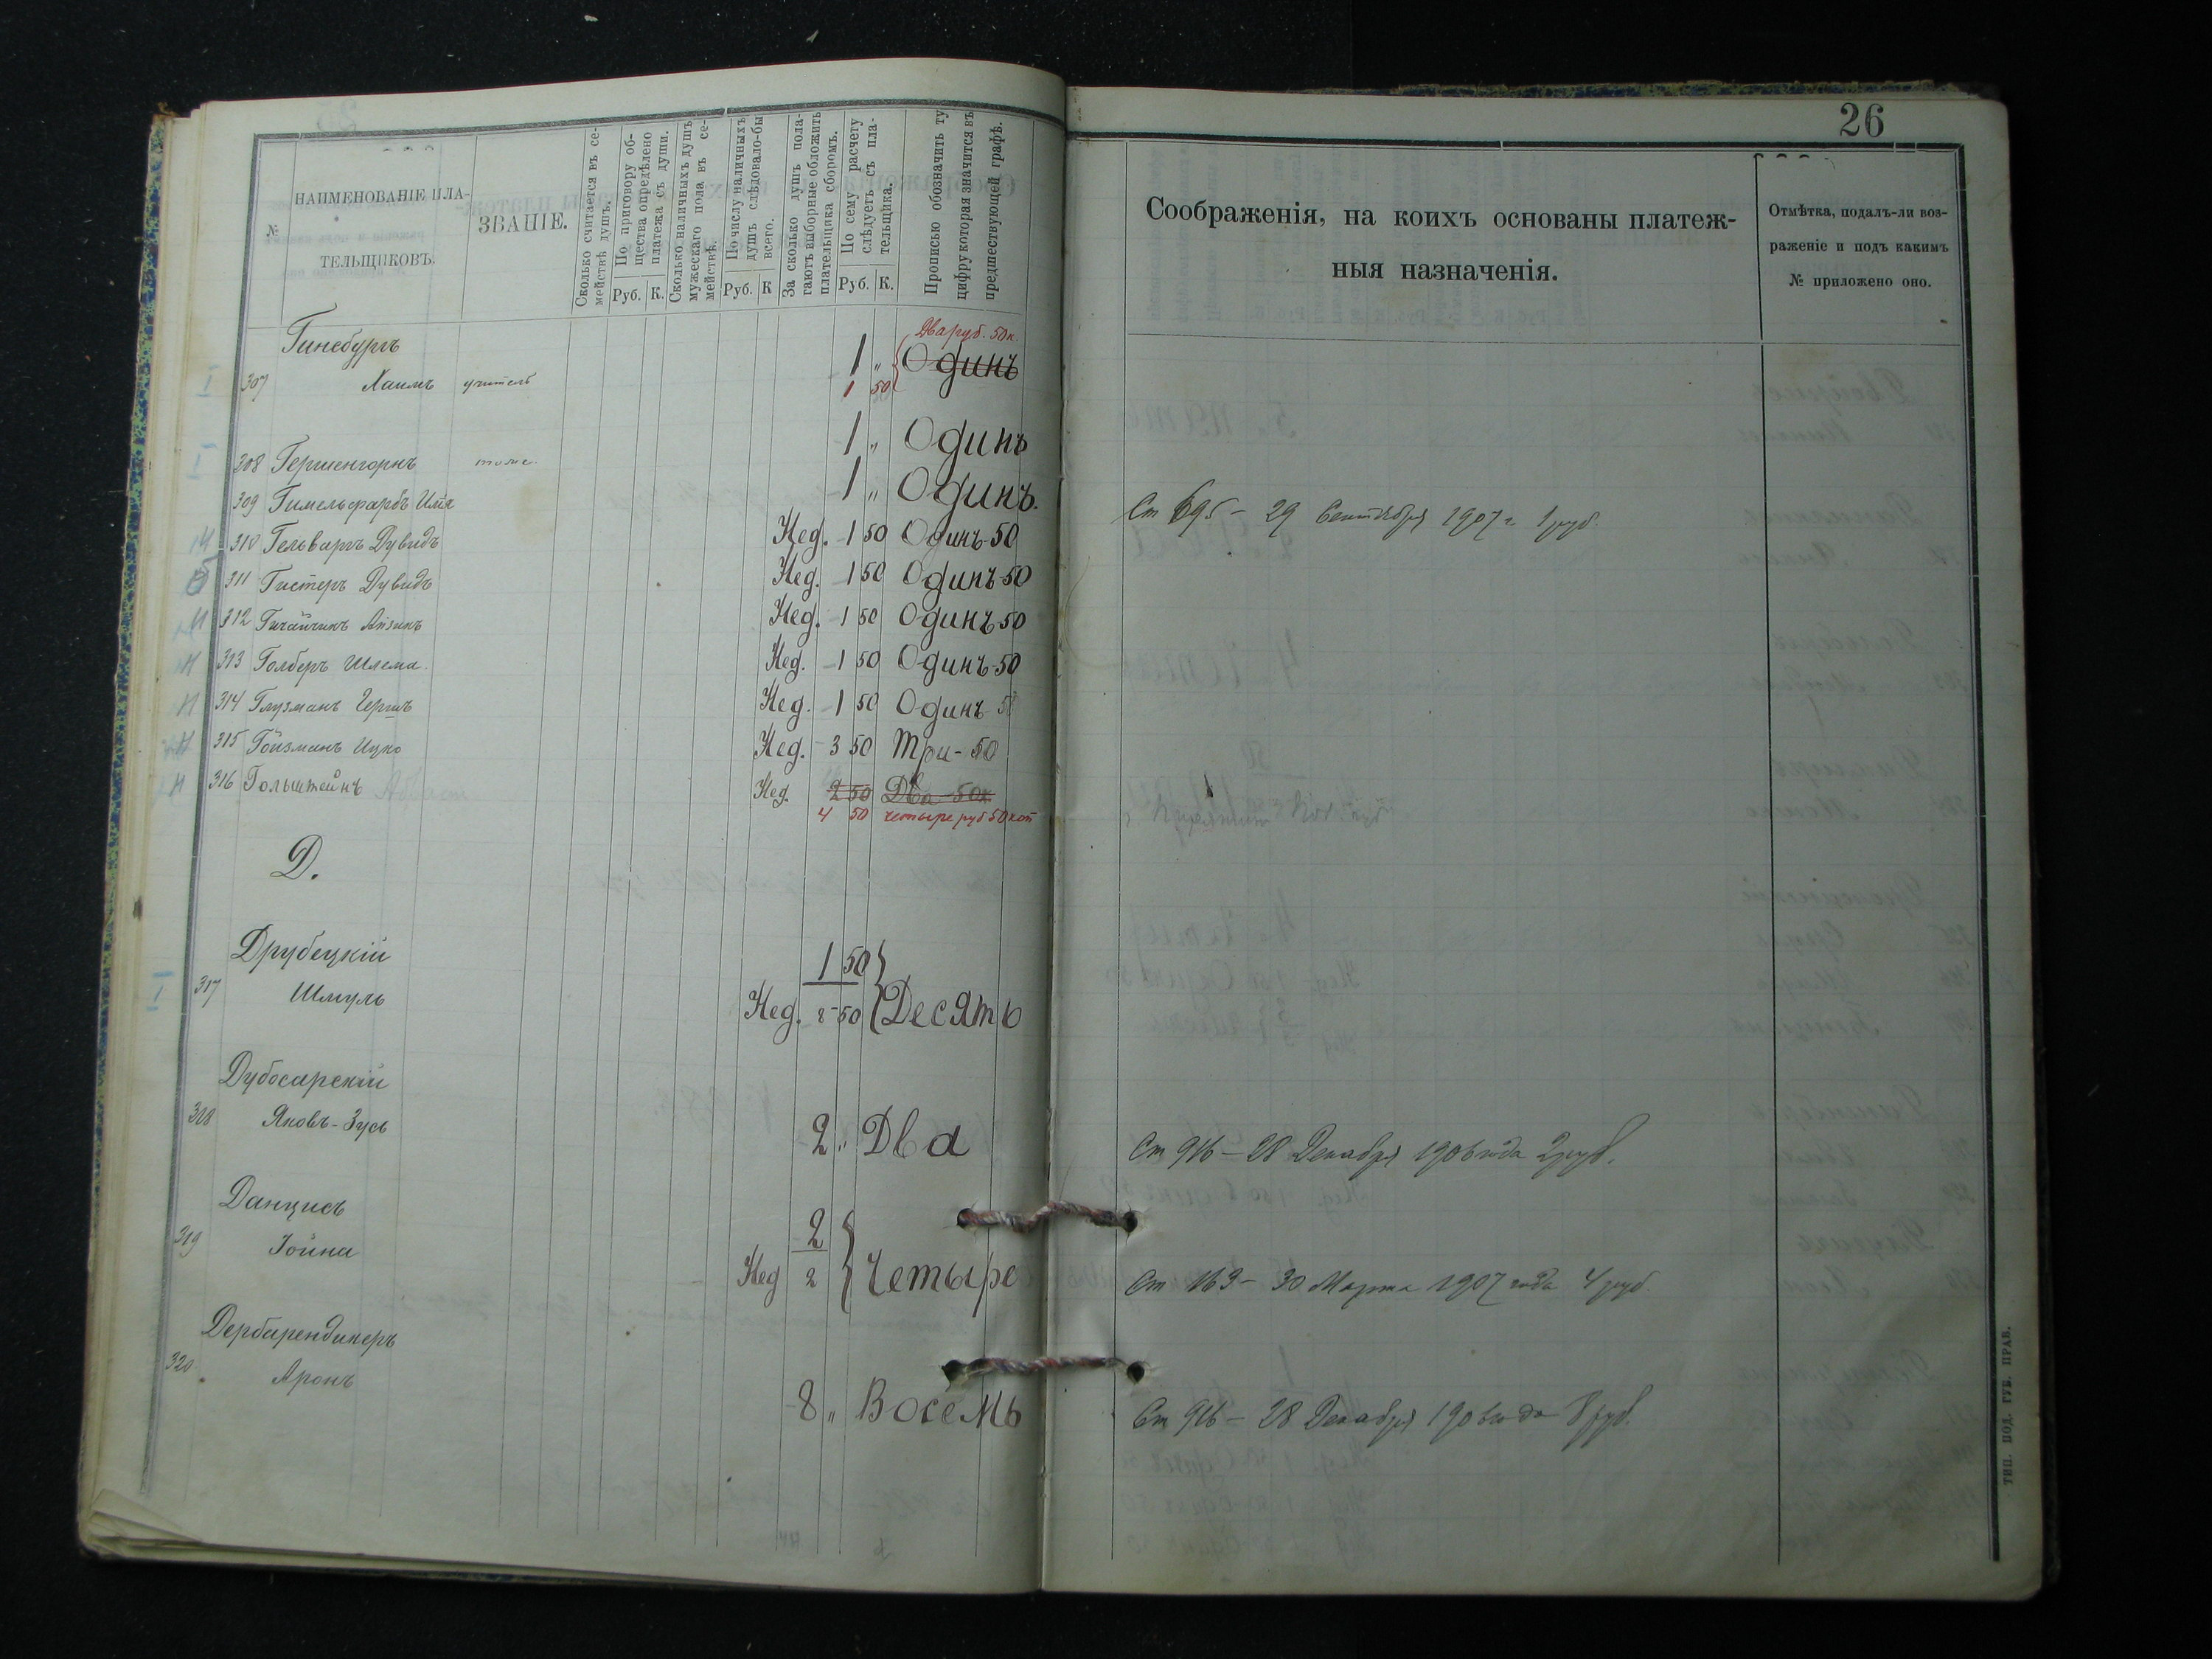 26
№
НАИМЕНОВАНІЕ ПЛА-
ТЕЛЬЩИКОВЪ.
ЗВАНІЕ.
Сколько считается въ се-
мействѣ душъ.
По приговору об-
щества опредѣлено
платежа съ души.
Руб. К.
Сколько наличныхъ душъ
мужескаго пола въ се-
мействѣ.
По числу наличныхъ
душъ слѣдовало-бы
всего.
Руб. К
За сколько душъ пола-
гаютъ выборные обложить
плательщика сборомъ.
По сему расчету
слѣдуетъ съ пла-
тельщика.
Руб. К.
Прописью обозначить ту
цифру которая значится въ
предшествующей графѣ.
Соображенія, на коихъ основаны платеж-
ныя назначенія.
Отмѣтка, подалъ-ли воз-
раженіе и подъ какимъ
№ приложено оно.
Гинсбургъ
Два руб. 50 к.
1 „ Одинъ
307 Хаимъ учитель 1 50
308 Гершенгорнъ тоже 1 „ Одинъ
309 Гимельфарбъ 1 „ Одинъ. Ст 695 – 29 Сентября 1907 г. 1 руб.
310 Гельваргъ Дувидъ Кед. 1 50 Одинъ-50
311 Гистеръ Дувидъ Кед. 1 50 Одинъ-50
312 Айзикъ Кед. 1 50 Одинъ 50
313 Голберъ Шлема. Кед. 1 50 Одинъ-50
314 Глузманъ Гершъ Кед. 1 50 Одинъ-50
315 Гойзманъ Ицко Кед. 3 50 Три-50
316 Гольштейнъ Кед. 2 50 Два-50к.
4 50 четыре руб 50 коп
Д.
Друбецкій 1 50
317 Шмуль Кед. 8-50 Десять
Дубосарскій
318 Яковъ-Зусь 2 „ Два Ст 916 – 28 Декабря 1906 года 2 руб.
Данцисъ 2
319 Іойна Кед 2 Четыре Ст 163 – 30 Марта 1907 года 4 руб
Дербарендикеръ
320 Аронъ 8 „ Восемь Ст 916 – 28 Декабря 1906 года 8 руб.
ТИП. ПОД. ГУБ. ПРАВ.